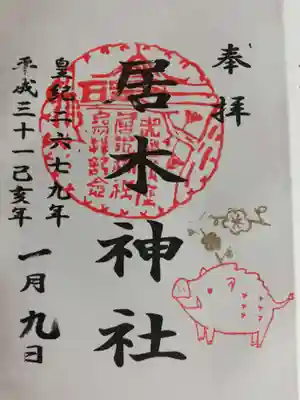 奉拝
居木神社
皇紀二六七九年
平成三十一己亥年
一月九日